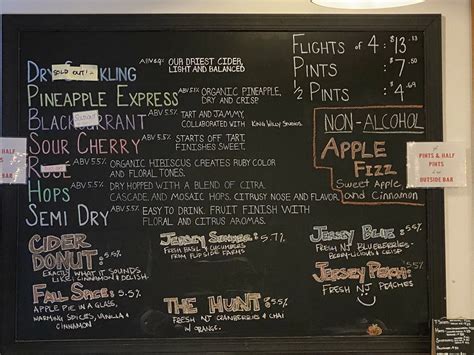 DRY SPARKLING
SOLD OUT!
OUR DRIEST CIDER,
LIGHT AND BALANCED
PINEAPPLE EXPRESS ABV 5% ORGANIC PINEAPPLE,
DRY AND CRISP
BLACKCURRANT ABV 5.5% TART AND JAMMY,
COLLABORATED WITH KING WILLY
SOUR CHERRY ABV 5.5% STARTS OFF TART
FINISHES SWEET.
ABV 5.5% ORGANIC HIBISCUS CREATES RUBY COLOR
AND FLORAL TONES.
HOPS ABV 5.5% DRY HOPPED WITH A BLEND OF CITRA,
CASCADE, AND MOSAIC HOPS. CITRUSY NOSE AND FLAVOR.
SEMI DRY ABV 5.5% EASY TO DRINK. FRUIT FINISH WITH
FLORAL AND CITRUS AROMAS.
FLIGHTS OF 4: $13.13
PINTS : $7.50
1/2 PINTS : $4.69
NON-ALCOHOL
APPLE
FIZZ
SWEET APPLE
AND CINNAMON
CIDER
DONUT: 5.5%
EXACTLY WHAT IT SOUNDS
LIKE! CINNAMON & DELISH.
FALL SAGE: 5.5%
APPLE PIE IN A GLASS,
WARMING SPICES, VANILLA &
CINNAMON
JERSEY SUMMER: 5.7%
FRESH BASIL & CUCUMBERS
FROM FLIPSIDE FARMS
THE HUNT: 5.5%
FRESH NJ CRANBERRIES & CHAI
W/ ORANGE.
JERSEY BLUE: 5.5%
FRESH NJ BLUEBERRIES.
BERRY-LICIOUS & CRISP
JERSEY PEACH: 5%
FRESH NJ PEACHES
PINTS & HALF
PINTS
OUTSIDE BAR